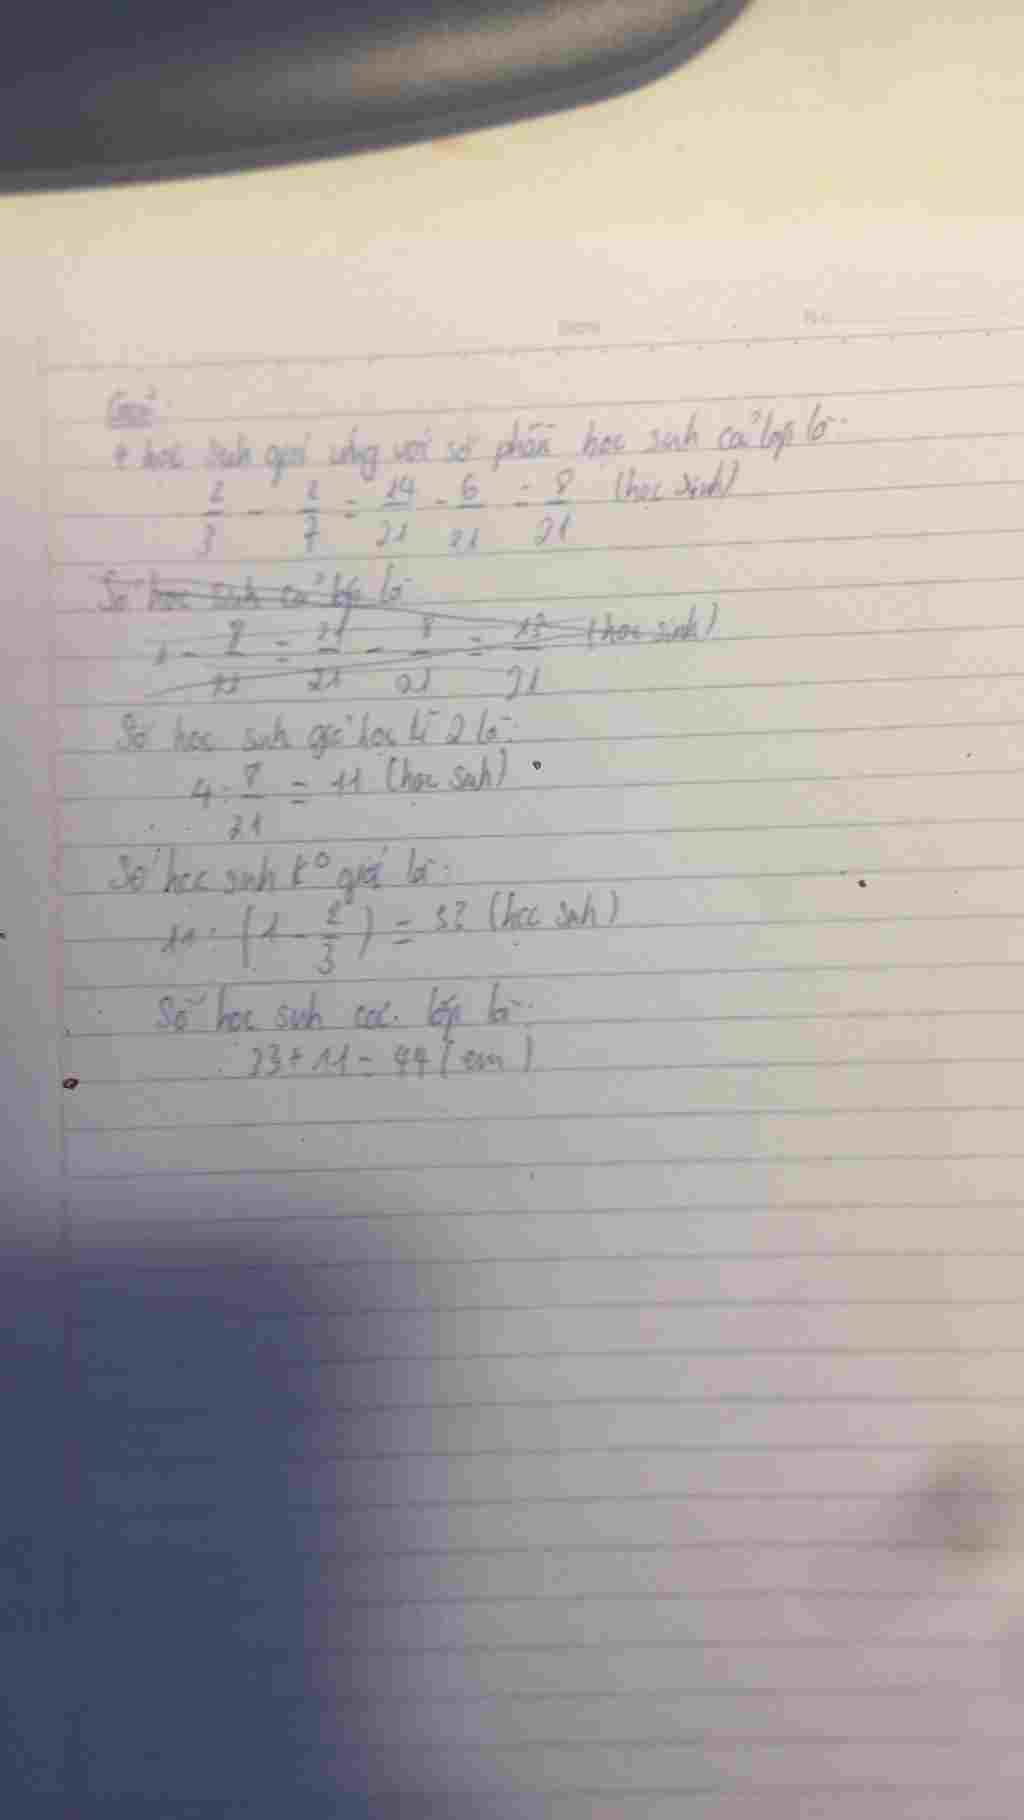 Giải
4 học sinh giỏi ứng với số phần học sinh cả lớp là:
2/3 - 2/7 = 14/21 - 6/21 = 8/21 (học sinh)
Số học sinh cả lớp là
1 - 8/21 = 21/21 - 8/21 = 13/21 (học sinh)
Số học sinh giỏi học kì 2 là:
4 : 8/21 = 11 (học sinh)
Số học sinh k° giỏi là:
11 : (1 - 2/3) = 33 (học sinh)
Số học sinh lớp là:
33 + 11 = 44 (em)